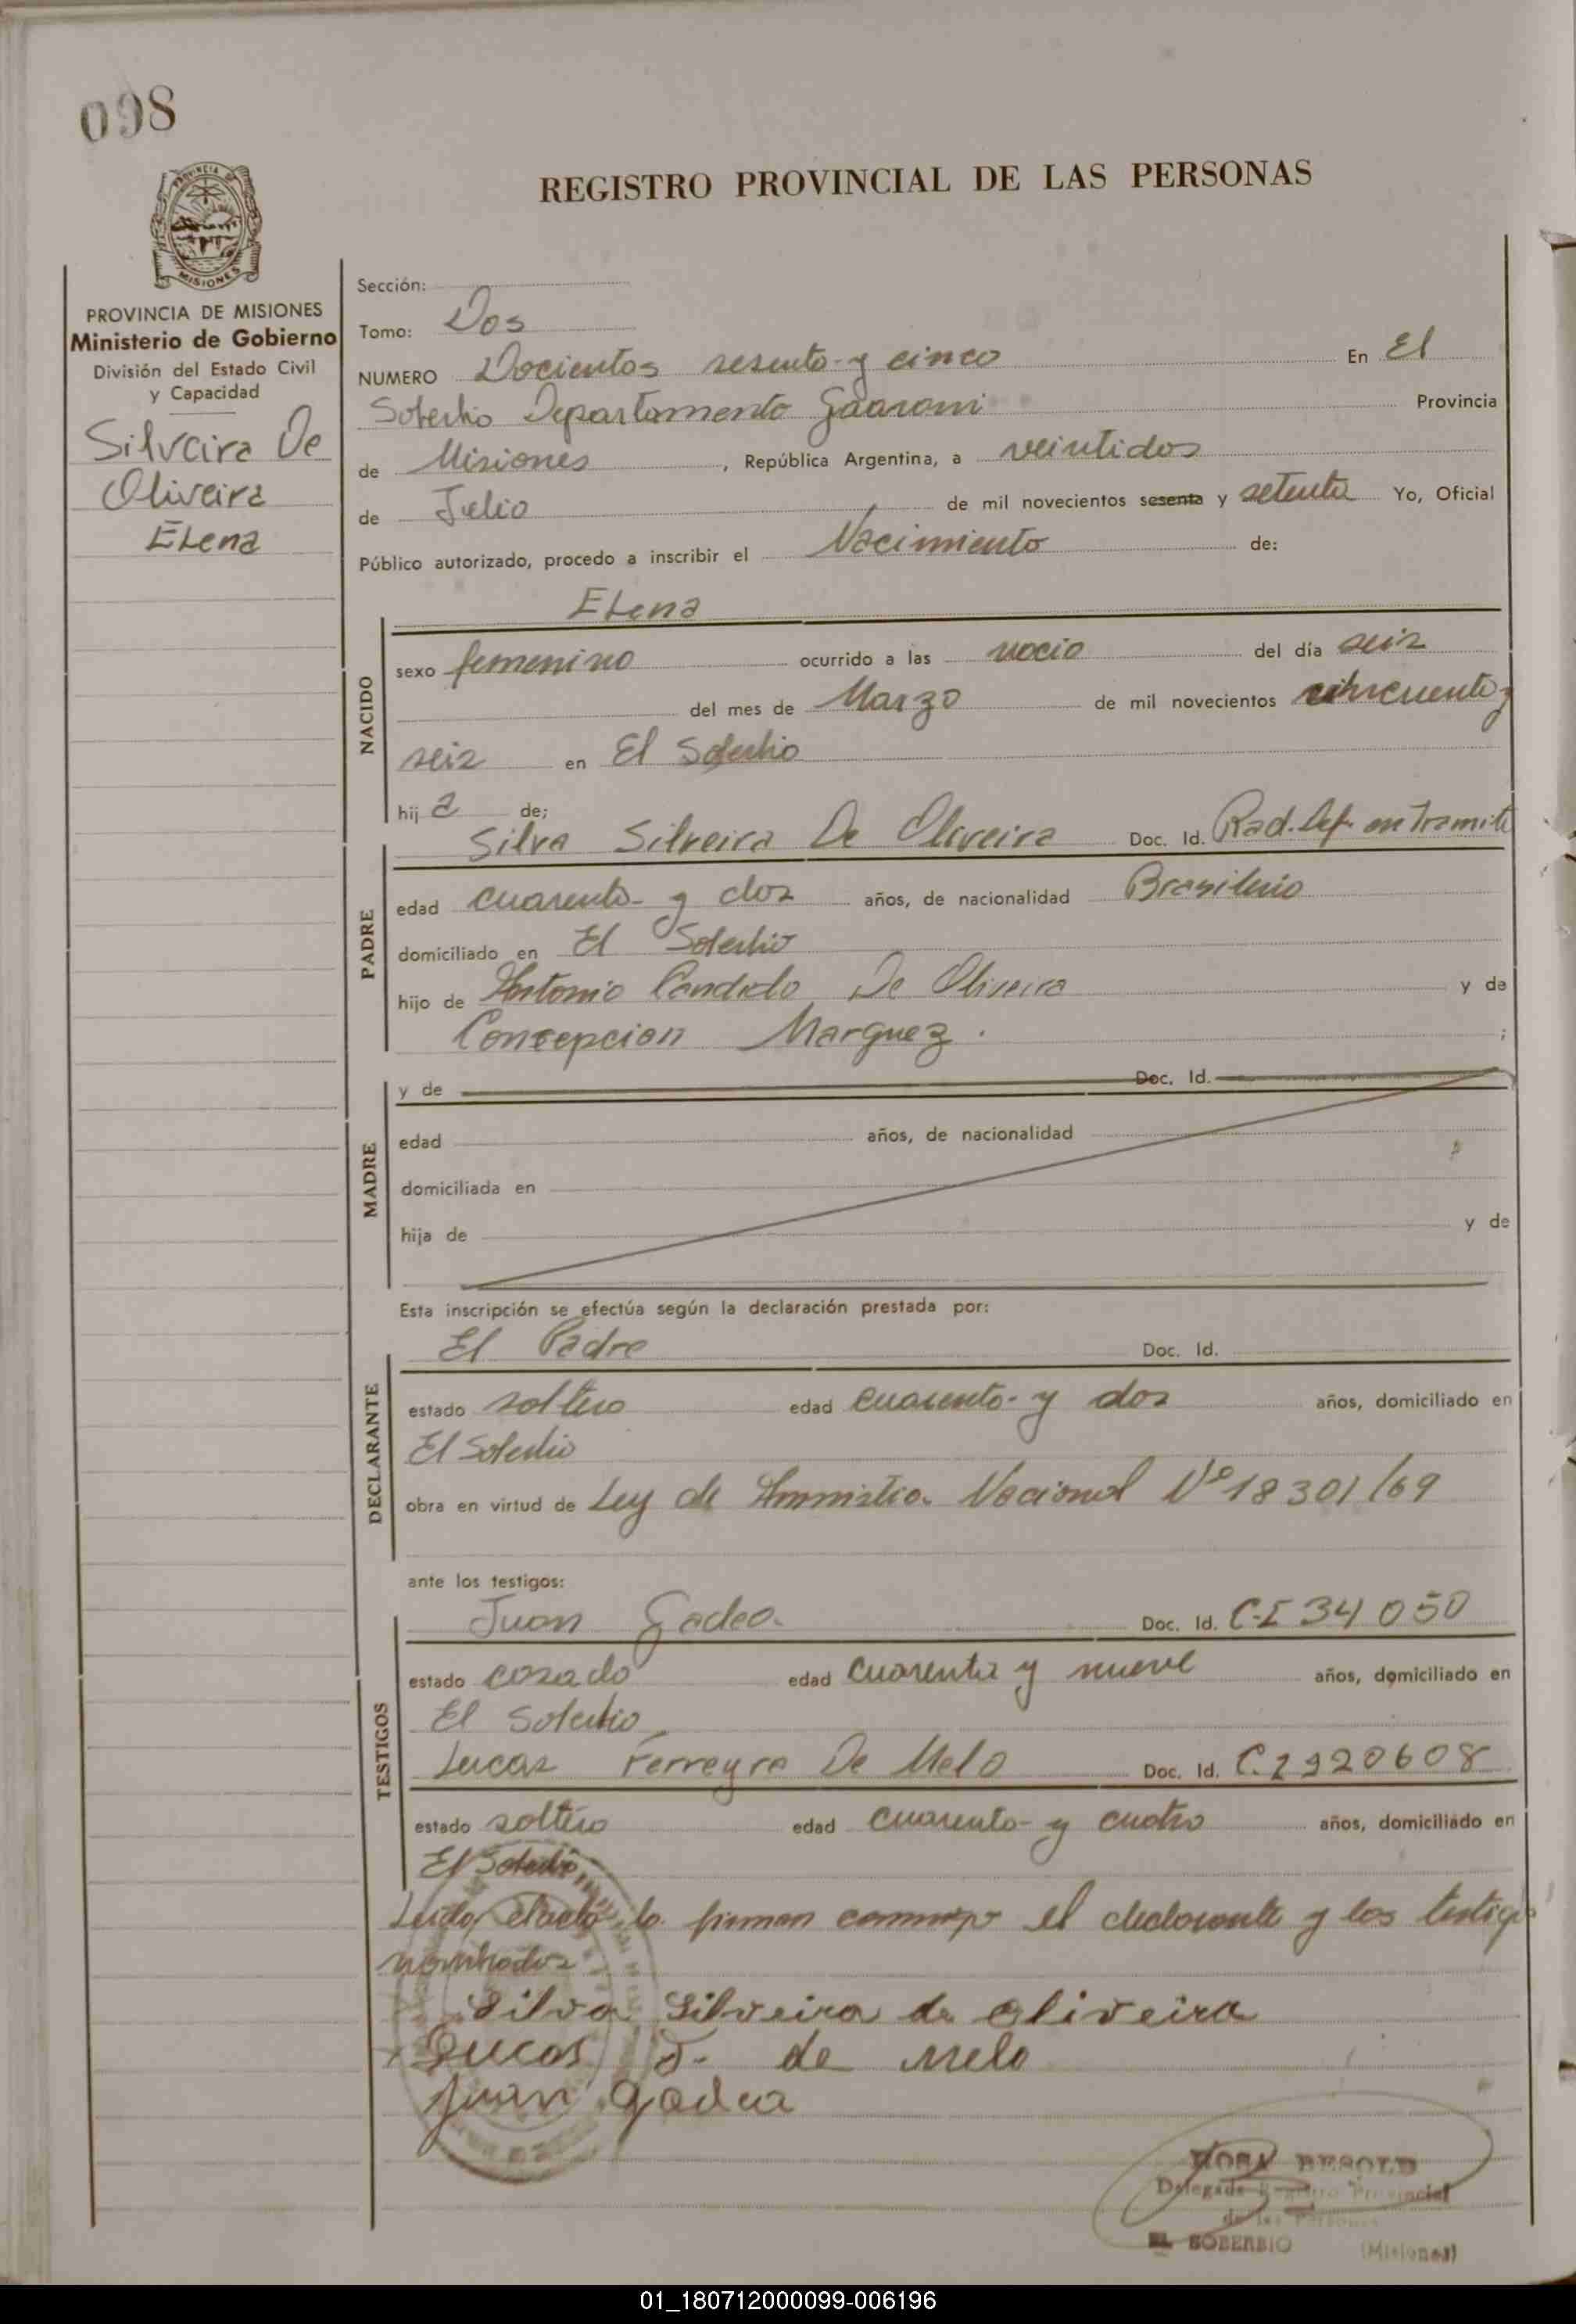 098
REGISTRO PROVINCIAL DE LAS PERSONAS
PROVINCIA DE MISIONES
Ministerio de Gobierno
División del Estado Civil
y Capacidad
Silveira De
Oliveira
Elena
Sección:
Tomo: Dos
NUMERO Docientos sesenta y cinco En El
Soberbio Departamento Guarani Provincia
de Misiones, República Argentina, a veintidos
de Julio de mil novecientos sesenta y setenta Yo, Oficial
Público autorizado, procedo a inscribir el Nacimiento de:
Elena
NACIDO
sexo femenino ocurrido a las del día seis
del mes de Marzo de mil novecientos cincuenta y
seis en El Soberbio
hija de;
PADRE
Silva Silveira De Oliveira Doc. Id. Rad. Def. en Tramite
edad cuarenta y dos años, de nacionalidad Brasilerio
domiciliado en El Soberbio
hijo de Antonio Candido De Oliveira y de
Concepcion Marquez. ;
MADRE
y de Doc. Id.
edad años, de nacionalidad
domiciliada en
hija de y de
Esta inscripción se efectúa según la declaración prestada por:
DECLARANTE
El Padre Doc. Id.
estado soltero edad cuarenta y dos años, domiciliado en
El Soberbio
obra en virtud de Ley de Amnistia Nacional Nº 18301/69
ante los testigos:
TESTIGOS
Juan Gadea Doc. Id. C.I 34050
estado casado edad cuarenta y nueve años, domiciliado en
El Soberbio
Lucas Ferreyra De Melo Doc. Id. C.I 920608
estado soltero edad cuarenta y cuatro años, domiciliado en
El Soberbio
Leida el acta la firman conmigo el declarante y los testigos
nombrados
Silva Silveira de Oliveira
Lucas F. de Melo
Juan Gadea
BESOLD
Delegada Registro Provincial
de las Personas
EL SOBERBIO (Misiones)
01_180712000099-006196